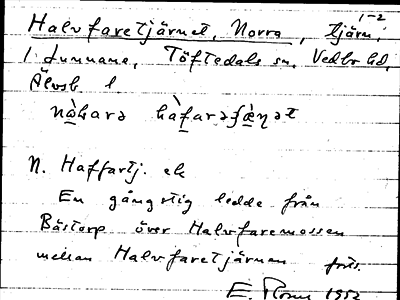 1-2
Halvfaretjärnet, Norra, tjärn,
1. Lunnane, Töftedals sn, Vedbo hd,
Älvsb l
nò̱hara hàf̱arəʃæ̱ṇət
N. Haffartj. ek
En gångstig ledde från
Bästorp över Halvfaremossen
mellan Halvfaretjärnen förs.
E. 1952